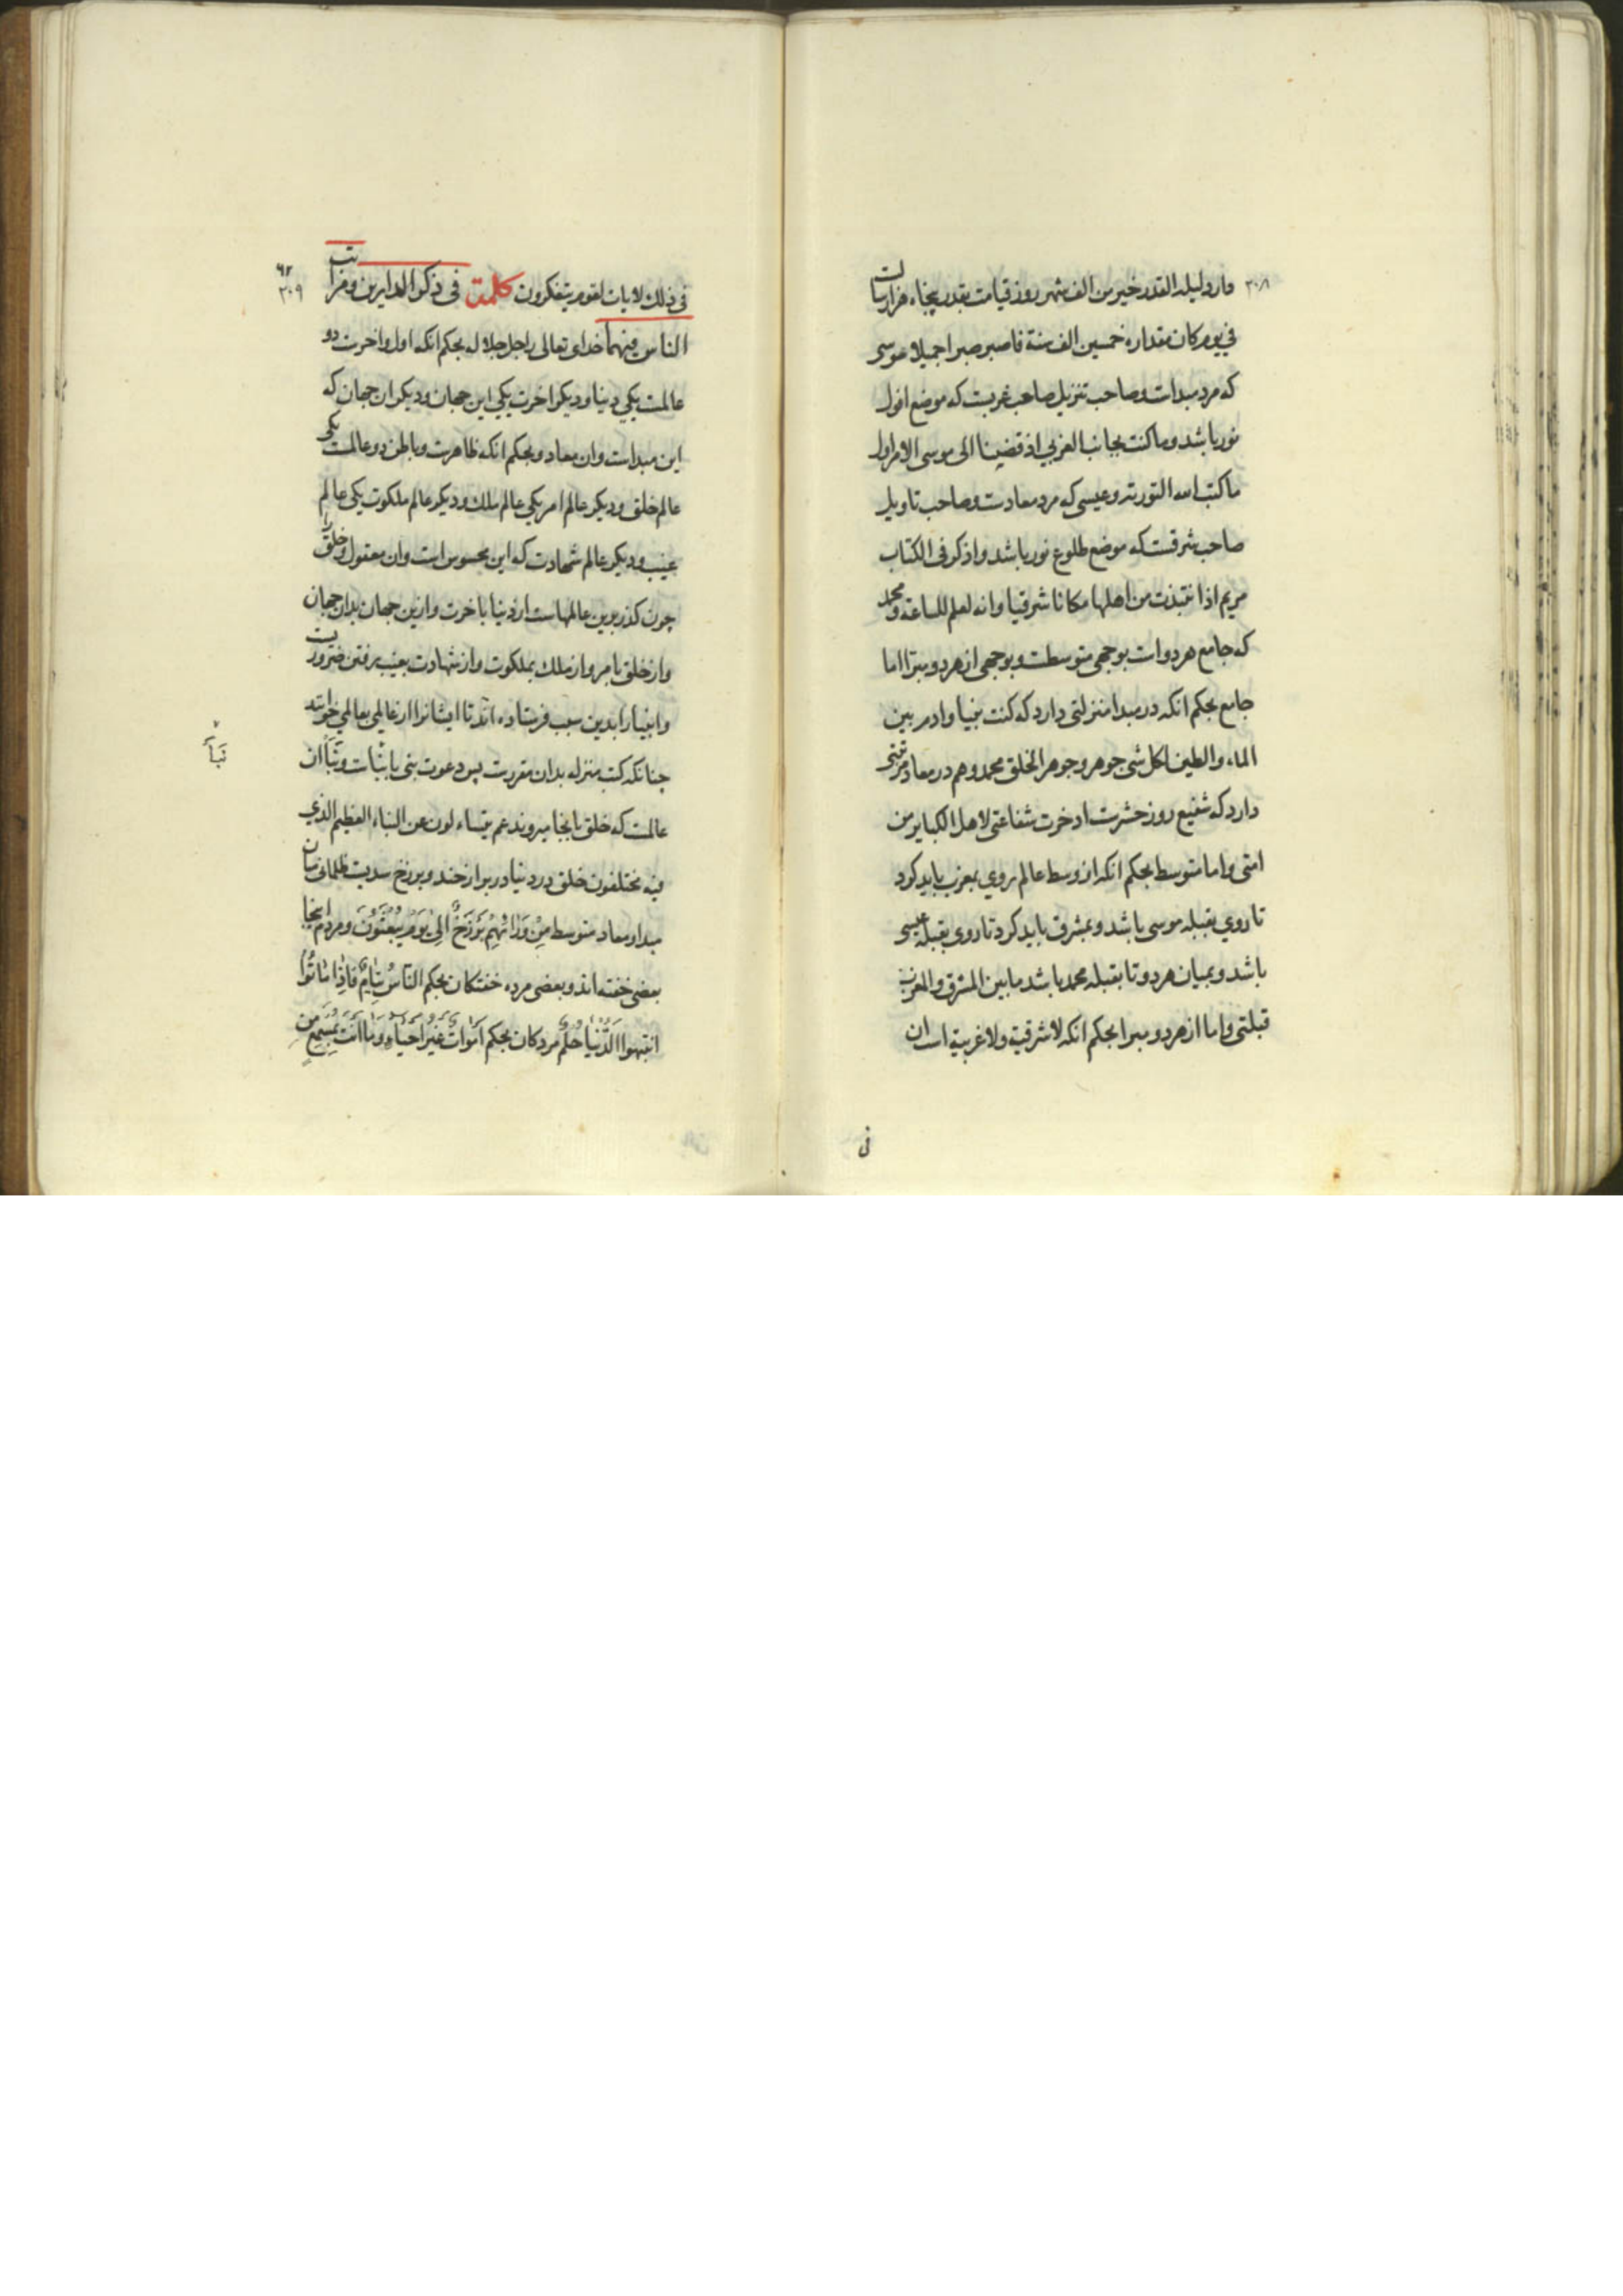 ٣٠٨
دارد ليلة القدر خير من الف شهر روز قيامت بقدر پنجاه هزار سالست
في يوم كان مقداره خمسين الف سنة فاصبر صبرا جميلا موسى
كه مرد مبدات وصاحب تنزيل صاحب غربست كه موضع افول
نور باشد وما كنت بجانب الغربي اذ قضينا الى موسى الامر اول
ما كتب الله التورية وعيسى كه مرد معادست وصاحب تاويل
صاحب شرقست كه موضع طلوع نور باشد واذكر فى الكتاب
مريم اذا نتبذت من اهلها مكانا شرقيا وانه لعلم للساعة ومحمد
كه جامع هر دوات بوجهى متوسطست وبوجهى از هر دو مبرا اما
جامع بحكم انكه در مبدا منزلتى دارد كه كنت نبيا وادم بين
الماء والطين لكل شى جوهر وجوهر الخلق محمد وهم در معاد مرتبتى
دارد كه شفيع روز حشرست ادخرت شفاعتى لاهل الكباير من
امتى واما متوسط بحكم انكه از وسط عالم روي بمغرب بايد كرد
تا روي بقبله موسى باشد وبمشرق بايد كرد تا روى بقبله عيسى
باشد وبميان هر دو تا بقبله محمد باشد ما بين المشرق والمغرب
قبلتى واما از هر دو مبرا بحكم انكه لا شرقية ولا غربية است ان
فى
٦٢
٣٠٩
فى ذلك لايات لقوم يتفكرون كلمة فى ذكر الدارين ومراتب
الناس فيهما خداى تعالى راجل جلاله بحكم انكه اول واخرت دو
عالمست يكي دنيا وديكر اخرت يكي اين جهان وديكر ان جهان كه
اين مبداست وان معاد وبحكم انكه ظاهرست وباطن دو عالمست يكى
عالم خلق وديكر عالم امر يكي عالم ملك وديكر عالم ملكوت يكى عالم
غيب وديكر عالم شهادت كه اين محسوس است وان معقول وخلق را
چون كذر بدين عالمهاست از دنيا باخرت وازين جهان بدان جهان
واز خلق بامر واز ملك بملكوت واز شهادت بغيب رفتن ضرورست
وانبيا را بدين سبب فرستاده اند تا ايشانرا از عالمي بعالمي خوانند
چنانكه كتب منزله بدان مقررست پس دعوت نبى باثبات ونَبَأ ان
نَبَأ
عالمست كه خلق بانجا ميروند عم يتساءلون عن النباء العظيم الذي
فيه مختلفون خلق در دنيا در برازخند وبرزخ سديست ظلمانى ميان
مبدا ومعاد متوسط مِنْ وَرَائِهِمْ بَرْزَخٌ اِلىٰ يَوْمِ يُبْعَثُوْنَ ومردم اينجا
بعضى خفته اند وبعضى مرده خفتكان بحكم النّاسُ نِيَامٌ فَاِذَا مَاتُوْا
انتبهوا الَدُّنْيَا حُلْمٌ مردكان بحكم اَمْوَاتٌ غَيْرُ اَحْيَاءٍ وَمَا اَنْتَ بِمُسْمِعٍ مَنْ